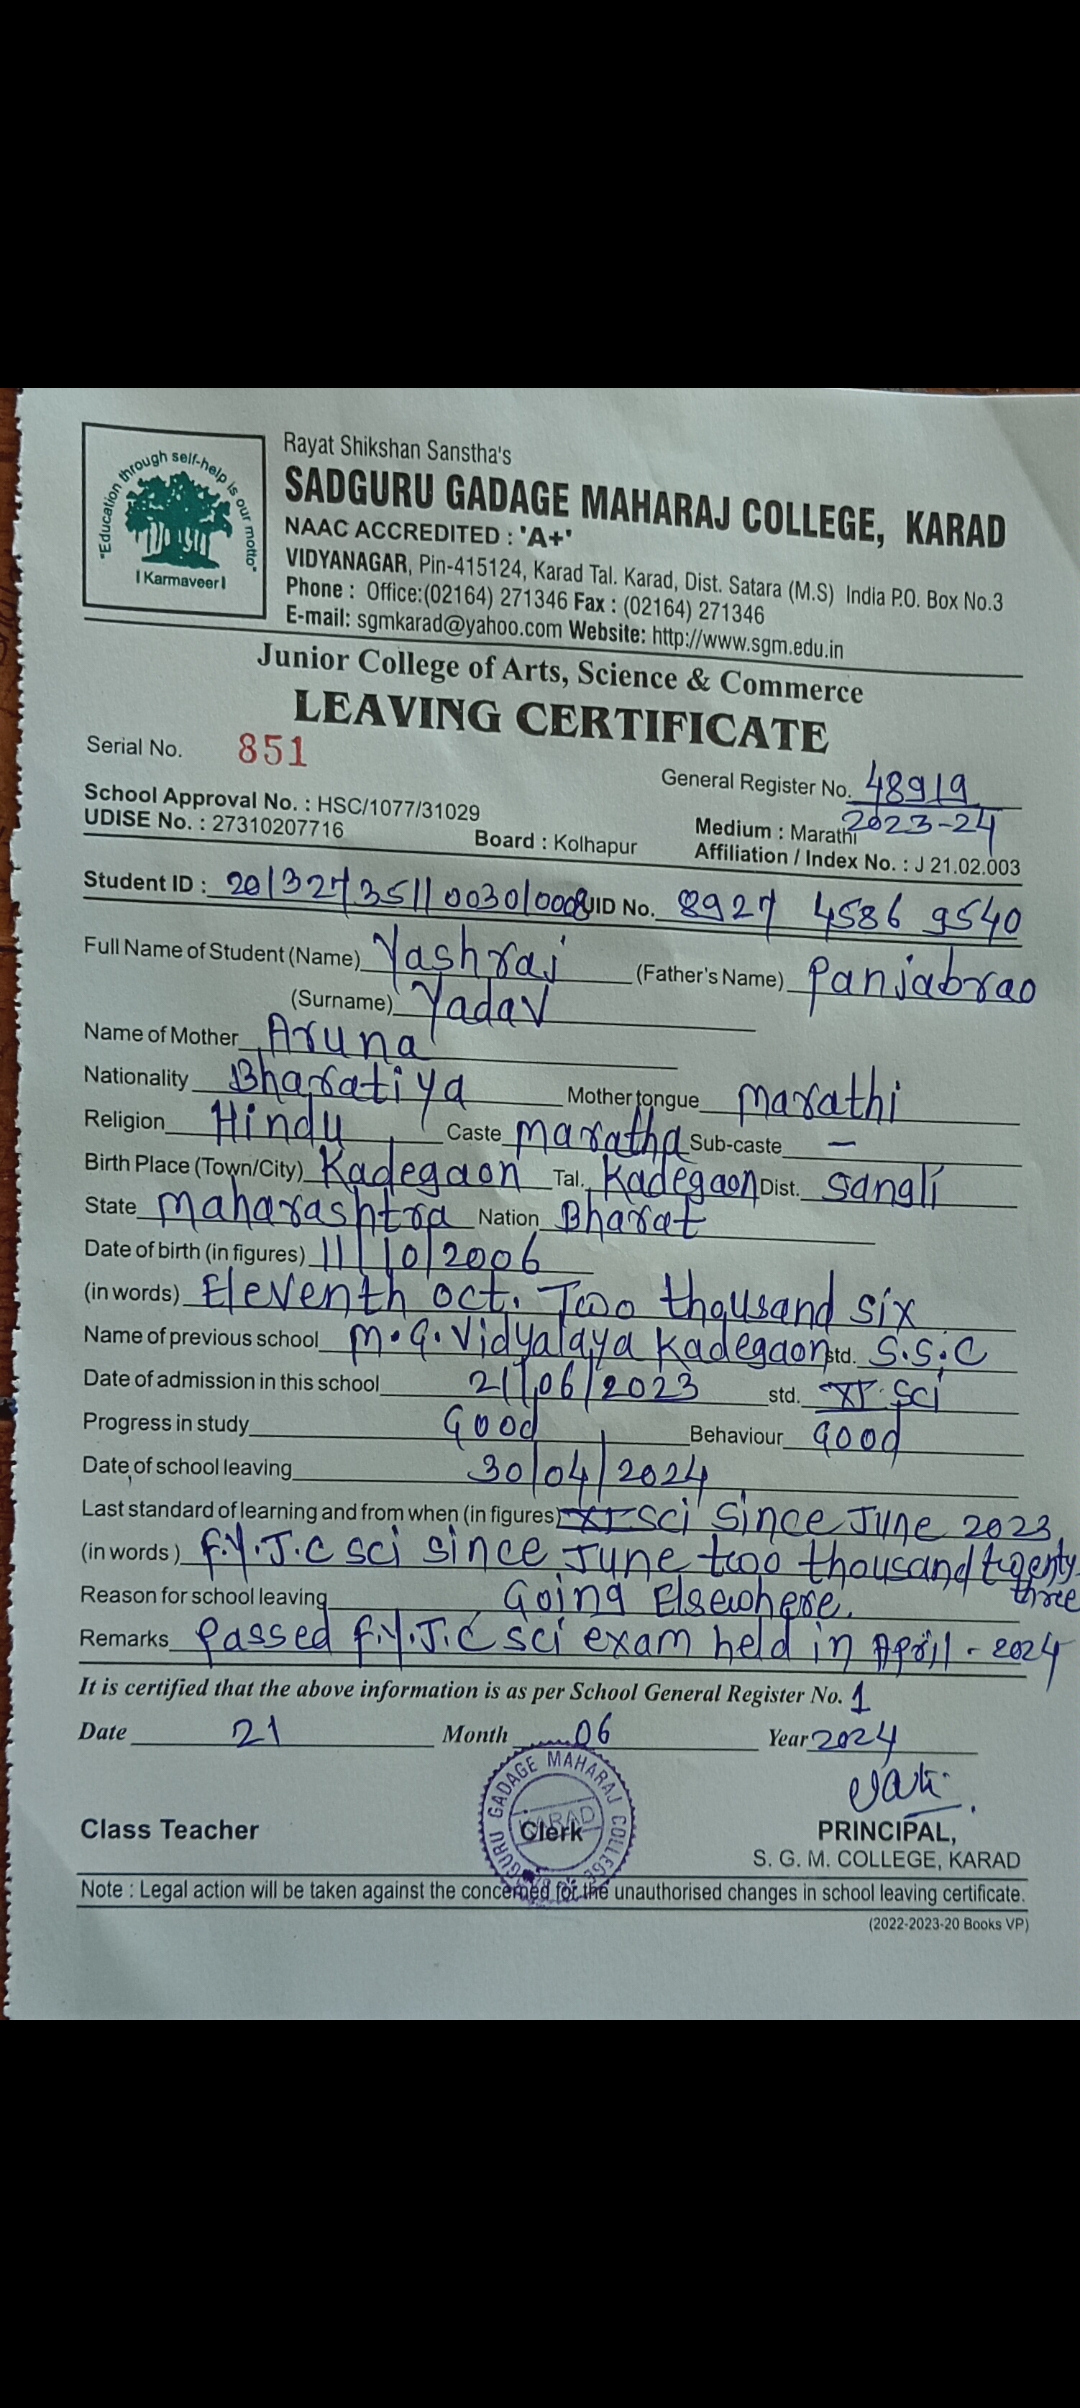 "Education through self-help is our motto"
I Karmaveer I
Rayat Shikshan Sanstha's
SADGURU GADAGE MAHARAJ COLLEGE, KARAD
NAAC ACCREDITED : 'A+'
VIDYANAGAR, Pin-415124, Karad Tal. Karad, Dist. Satara (M.S) India P.O. Box No.3
Phone : Office:(02164) 271346 Fax : (02164) 271346
E-mail: sgmkarad@yahoo.com Website: http://www.sgm.edu.in
Junior College of Arts, Science & Commerce
LEAVING CERTIFICATE
Serial No. 851
General Register No. 48919
2023-24
School Approval No. : HSC/1077/31029
UDISE No. : 27310207716 Board : Kolhapur Medium : Marathi
Affiliation / Index No. : J 21.02.003
Student ID : UID No. 8927 4586 9540
Full Name of Student (Name) Yashraj (Father's Name) Panjabrao
(Surname) Yadav
Name of Mother Aruna
Nationality Bharatiya Mother tongue Marathi
Religion Hindu Caste Maratha Sub-caste —
Birth Place (Town/City) Kadegaon Tal. Kadegaon Dist. Sangli
State Maharashtra Nation Bharat
Date of birth (in figures) 11/10/2006
(in words) Eleventh Oct. Two thousand six
Name of previous school M.G. Vidyalaya Kadegaon std. S.S.C
Date of admission in this school 21/06/2023 std. XI Sci
Progress in study Good Behaviour Good
Date of school leaving 30/04/2024
Last standard of learning and from when (in figures) XI Sci Since June 2023
(in words ) F.Y.J.C Sci Since June two thousand twenty three
Reason for school leaving Going Elsewhere.
Remarks Passed F.Y.J.C Sci exam held in April - 2024
It is certified that the above information is as per School General Register No. 1
Date 21 Month 06 Year 2024
GURU GADAGE MAHARAJ COLLEGE
KARAD
Class Teacher Clerk PRINCIPAL,
S. G. M. COLLEGE, KARAD
Note : Legal action will be taken against the concerned for the unauthorised changes in school leaving certificate.
(2022-2023-20 Books VP)